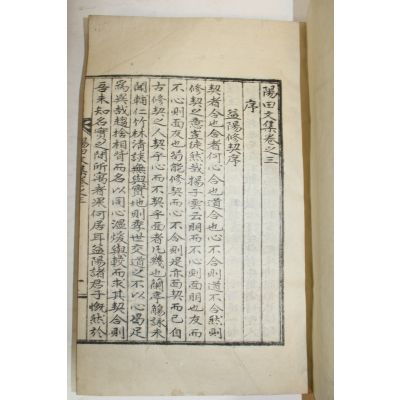 陽田文集卷之三
序
益陽修契序
契者合也合者何心合也道合也心不合則道不合然則
修契之意豈徒然哉揚子雲云朋而不心則面朋也友而
不心則面友也苟能修契而心不合則是亦面契而已自
古修契之人契乎心而不契乎面者凡幾也蘭亭觴詠未
聞輔仁竹林清談無與實地則擧世交道之不以心曷足
爲異哉趨捨相背而名以同心溫而求其契合則
吾未知名實之間所寓者果何居耳益陽諸君子慨然於
陽田文集卷之三